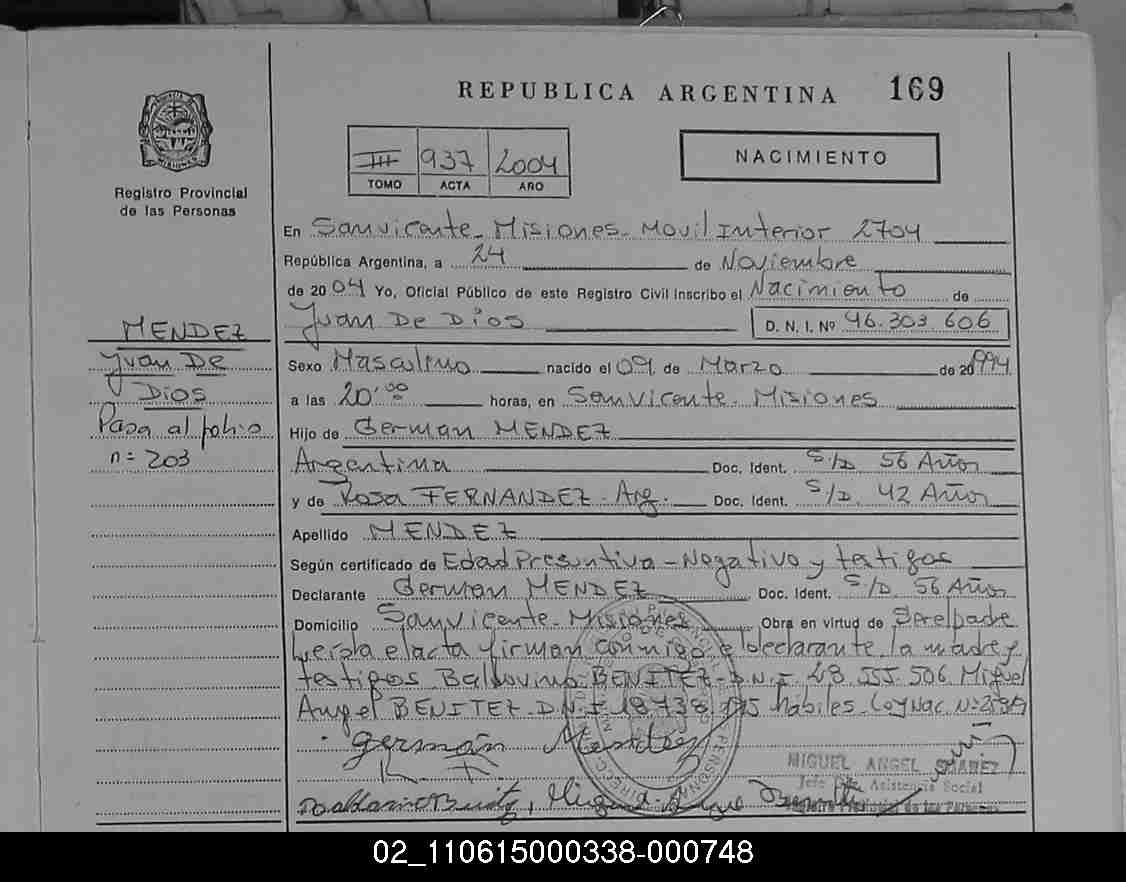 REPUBLICA ARGENTINA 169
Registro Provincial
de las Personas
III 937 2004
TOMO ACTA AÑO
NACIMIENTO
En San Vicente - Misiones - Movil Interior 2704
República Argentina, a 24 de Noviembre
de 2004 Yo, Oficial Público de este Registro Civil Inscribo el Nacimiento de
Juan De Dios D. N. I. Nº 96.303.606
MENDEZ
Juan De
Dios
Pasa al folio
n= 203
Sexo Masculino nacido el 09 de Marzo de 20 1994
a las 20:00 horas, en San Vicente - Misiones
Hijo de German MENDEZ
Argentina Doc. Ident. S/D 56 Años
y de Rosa FERNANDEZ - Arg. Doc. Ident. S/D. 42 Años
Apellido MENDEZ
Según certificado de Edad Presuntiva - Negativo y testigos
Declarante German MENDEZ Doc. Ident. S/D. 56 Años
Domicilio San Vicente - Misiones Obra en virtud de Ser el padre
el acta firman conmigo el declarante, la madre y
testigos BENITEZ - D.N.I 28.555.506 Miguel
Angel BENITEZ - D.N.I 18.738. habiles - Ley Nac. Nº
germán Mendez
MIGUEL ANGEL SUAREZ
Jefe Asistencia Social
Registro Provincial de las Personas
02_110615000338-000748